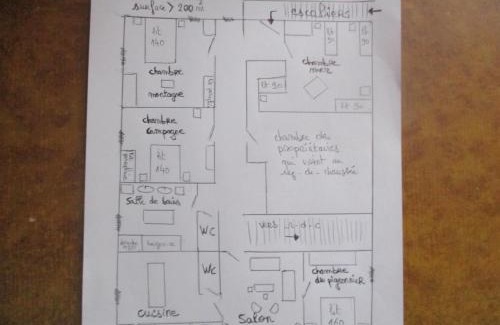 surface > 200 m²
ESCALIERS
lit
140
lit
90
lit
90
chambre
montagne
chambre
mer
lit 90
lit 90
chambre
campagne
lit
140
chambre de
propriétaires
qui vivent au
rez-de-chaussée
Salle de bains
WC
vers r-d-c
WC
cuisine
salon
chambre
du pigeonnier
lit
160